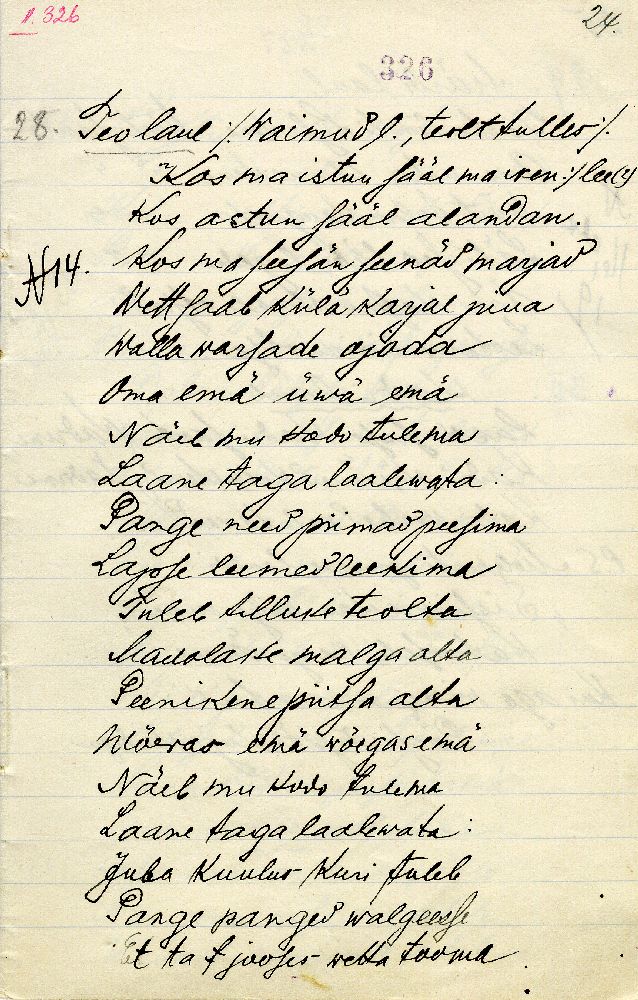 1. 326
24.
326
28. Teo laul /: Waimud l., teolt tulles :/.
Kos ma istun sääl ma iken :/ lee (2)
Kos astun sääl alandan.
N 14. Kos ma sesän seenäd marjad
Wett saab külä karjal juua
Walla warsade ojoda
Oma emä üwä emä
Näeb mu kodo tulema
Laane taga laalewata:
Pange need piimad peesima
Lapse leemed leekima
Tuleb tilluke teolta
Madolake malga alta
Peenikene piitsa alta
Wõeras emä wõegas emä
Näeb mu kodo tulema
Laane taga laalewata:
Juba kuulus kuri tuleb
Pange panged walgeesse
Et ta jooses wetta tooma